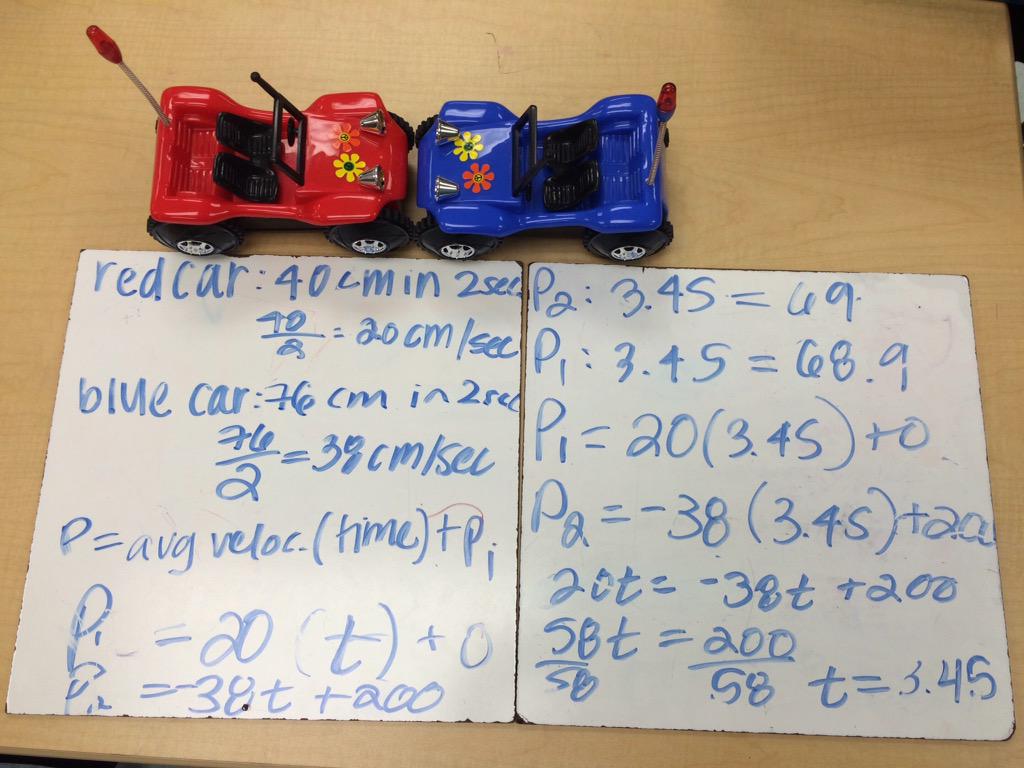 red car: 40 cm in 2sec
40/2 = 20 cm/sec
blue car: 76 cm in 2sec
76/2 = 38 cm/sec
P = avg veloc. (time) + Pi
P1 = 20 (t) + 0
P2 = -38t + 200
P2: 3.45 = 69
P1: 3.45 = 68.9
P1 = 20(3.45) + 0
P2 = -38 (3.45) + 200
20t = -38t + 200
58t/58 = 200/58 t = 3.45